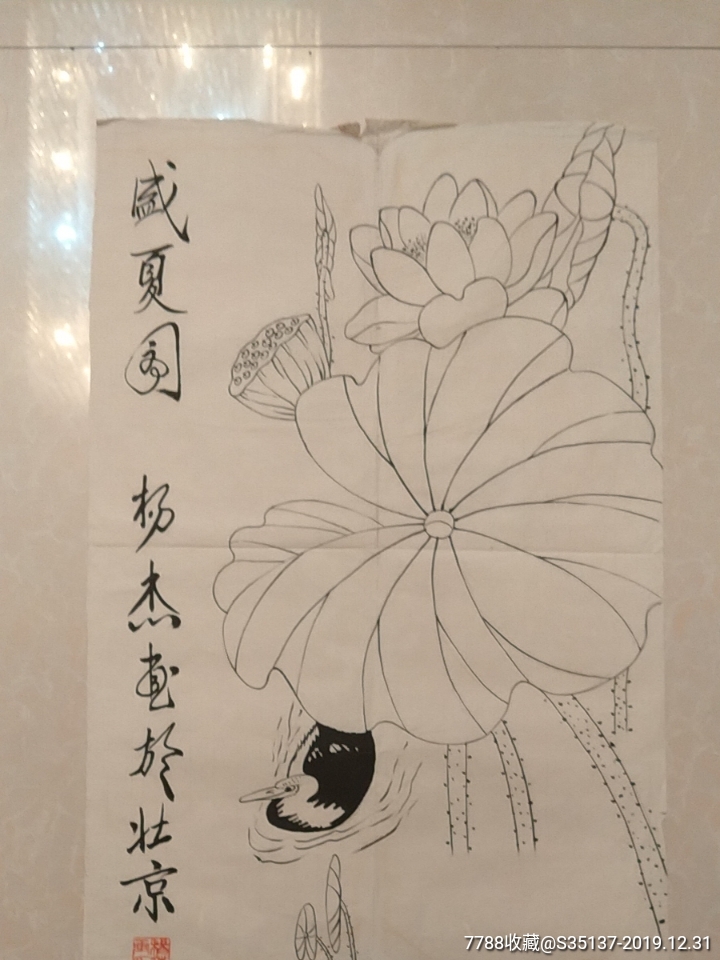 盛夏圖 杨杰畫於北京
7788收藏@S35137-2019.12.31